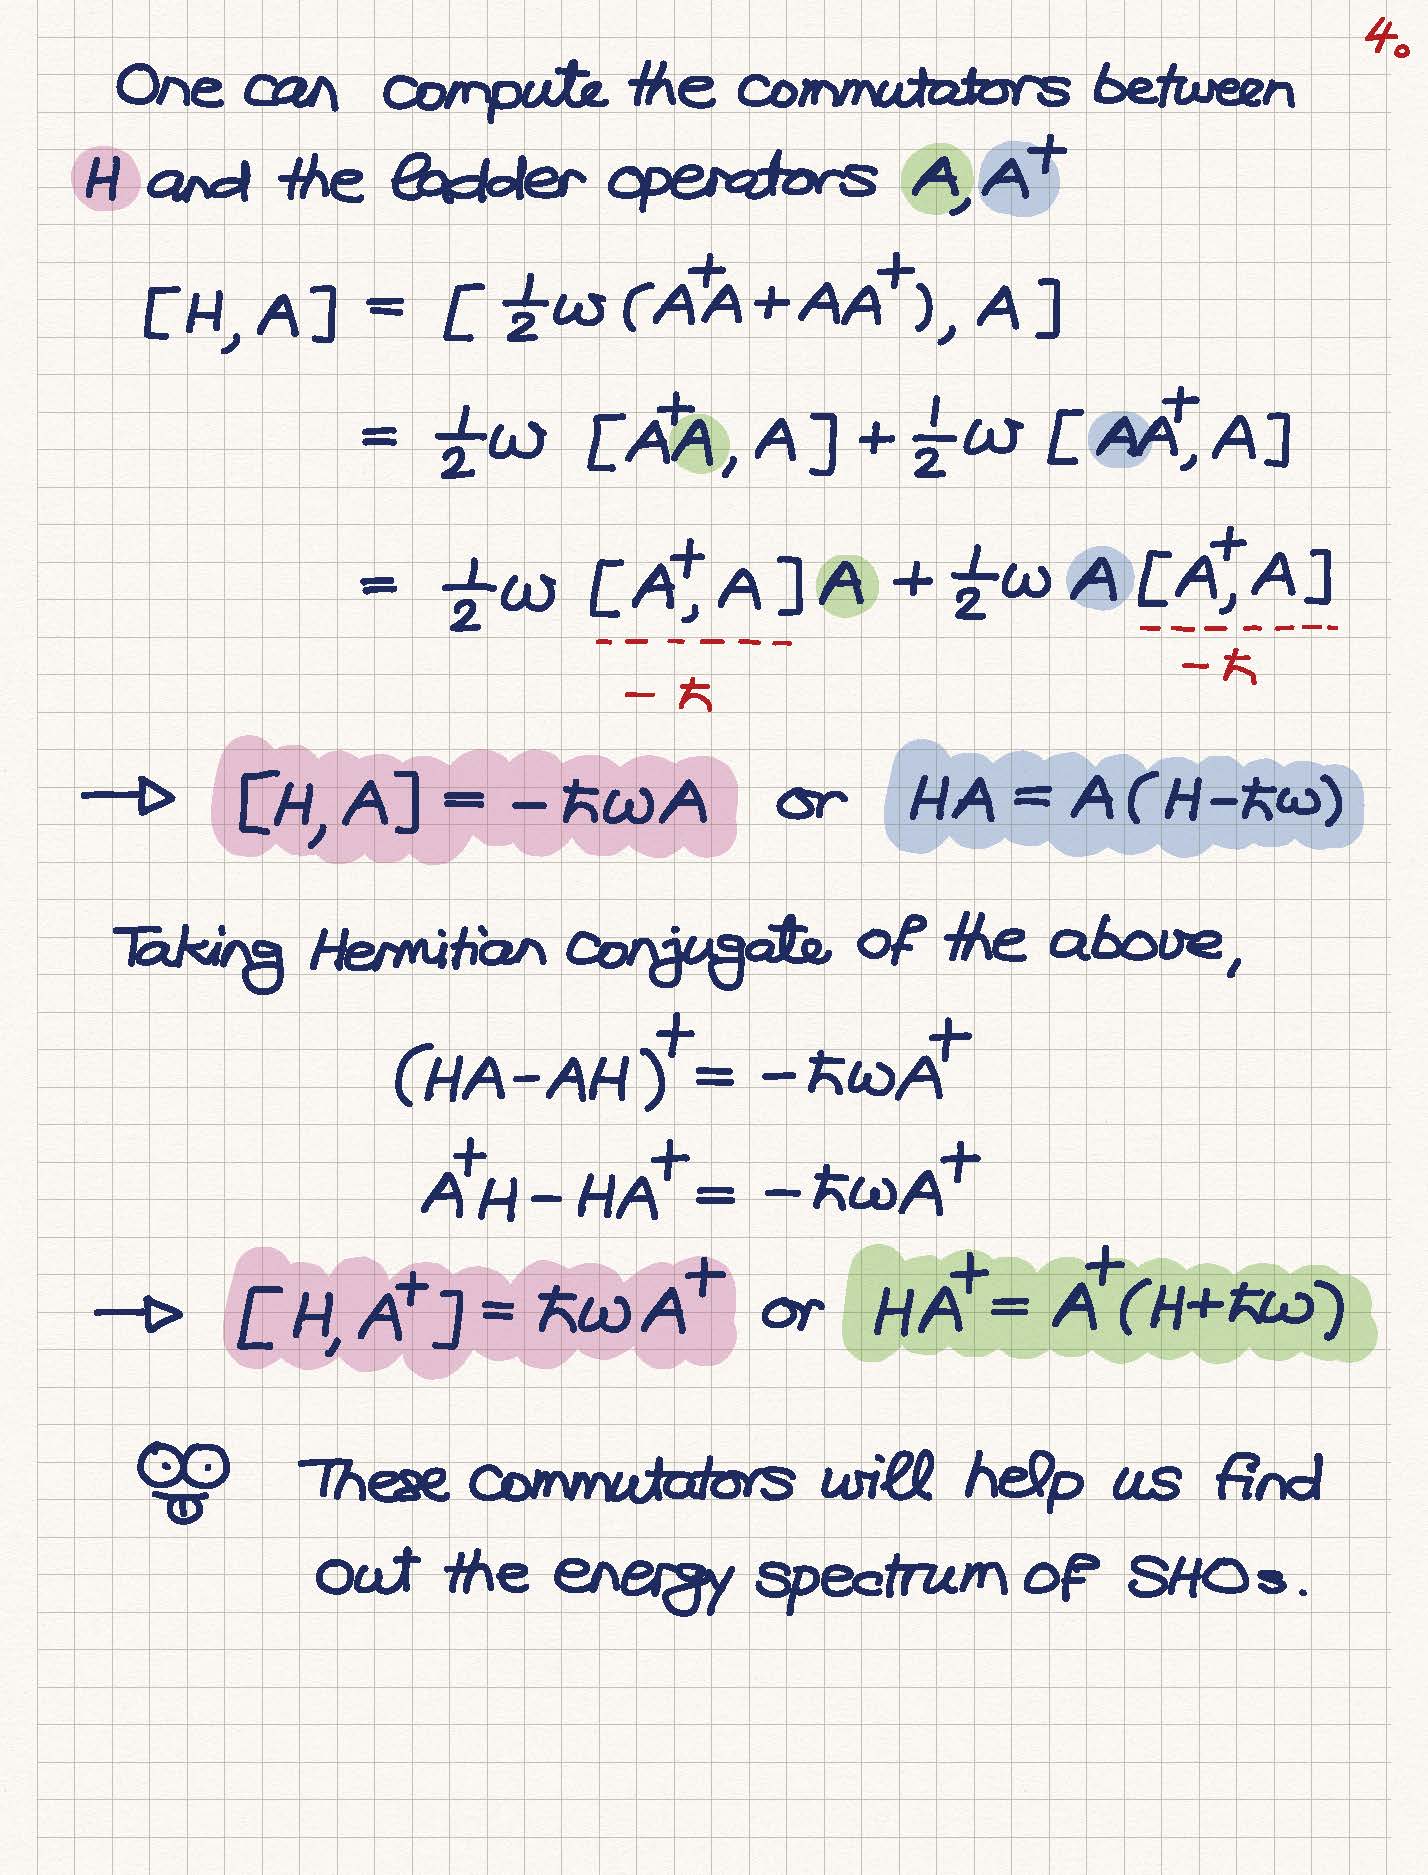 4.
One can compute the commutators between
H and the ladder operators A, A†
[H, A] = [½ω(A†A + AA†), A]
= ½ω [A†A, A] + ½ω [AA†, A]
= ½ω [A†, A]A + ½ω A[A†, A]
-ħ -ħ
→ [H, A] = -ħωA or HA = A(H-ħω)
Taking Hermitian conjugate of the above,
(HA-AH)† = -ħωA†
A†H - HA† = -ħωA†
→ [H, A†] = ħωA† or HA† = A†(H+ħω)
These commutators will help us find
out the energy spectrum of SHOs.